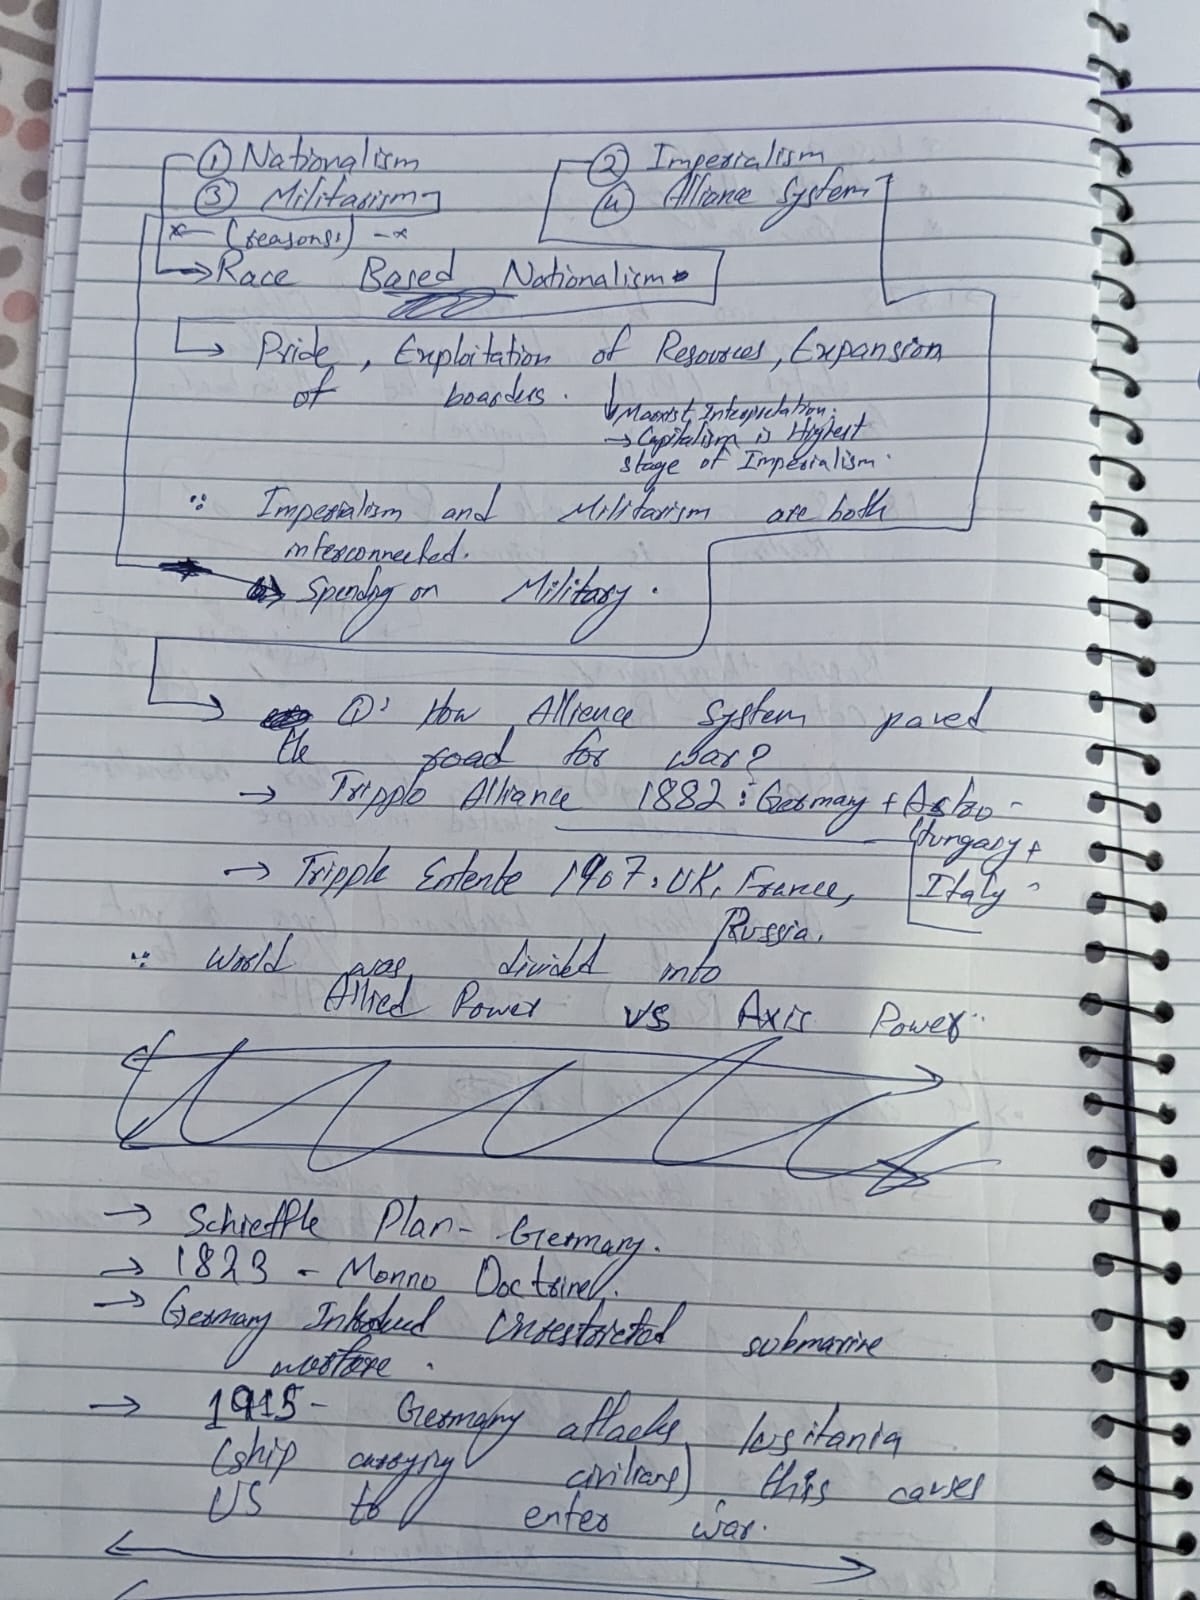 ① Nationalism ② Imperialism
③ Militarism ④ Alliance System
(reasons:)
→ Race Based Nationalism.
→ Pride, Exploitation of Resources, Expansion
of boarders.
↓ Marxist Interpretation:
→ Capitalism is Highest
stage of Imperialism.
∵ Imperialism and Militarism are both
interconnected.
→ Spending on Military.
→ Q: How Allience System paved
the road for war?
→ Tripple Alliance 1882: Germany + Astro-
Hungary +
Italy
→ Tripple Entente 1907: UK, France,
Russia.
∵ World was divided into
Allied Power VS Axis Power
→ Schieffle Plan - Germany.
→ 1823 - Monno Doctrine.
→ Germany Introdued Unrestricted submarine
warfare.
→ 1915 - Germany attacks lusitania
(ship carrying civilians) this causes
US to enter war.